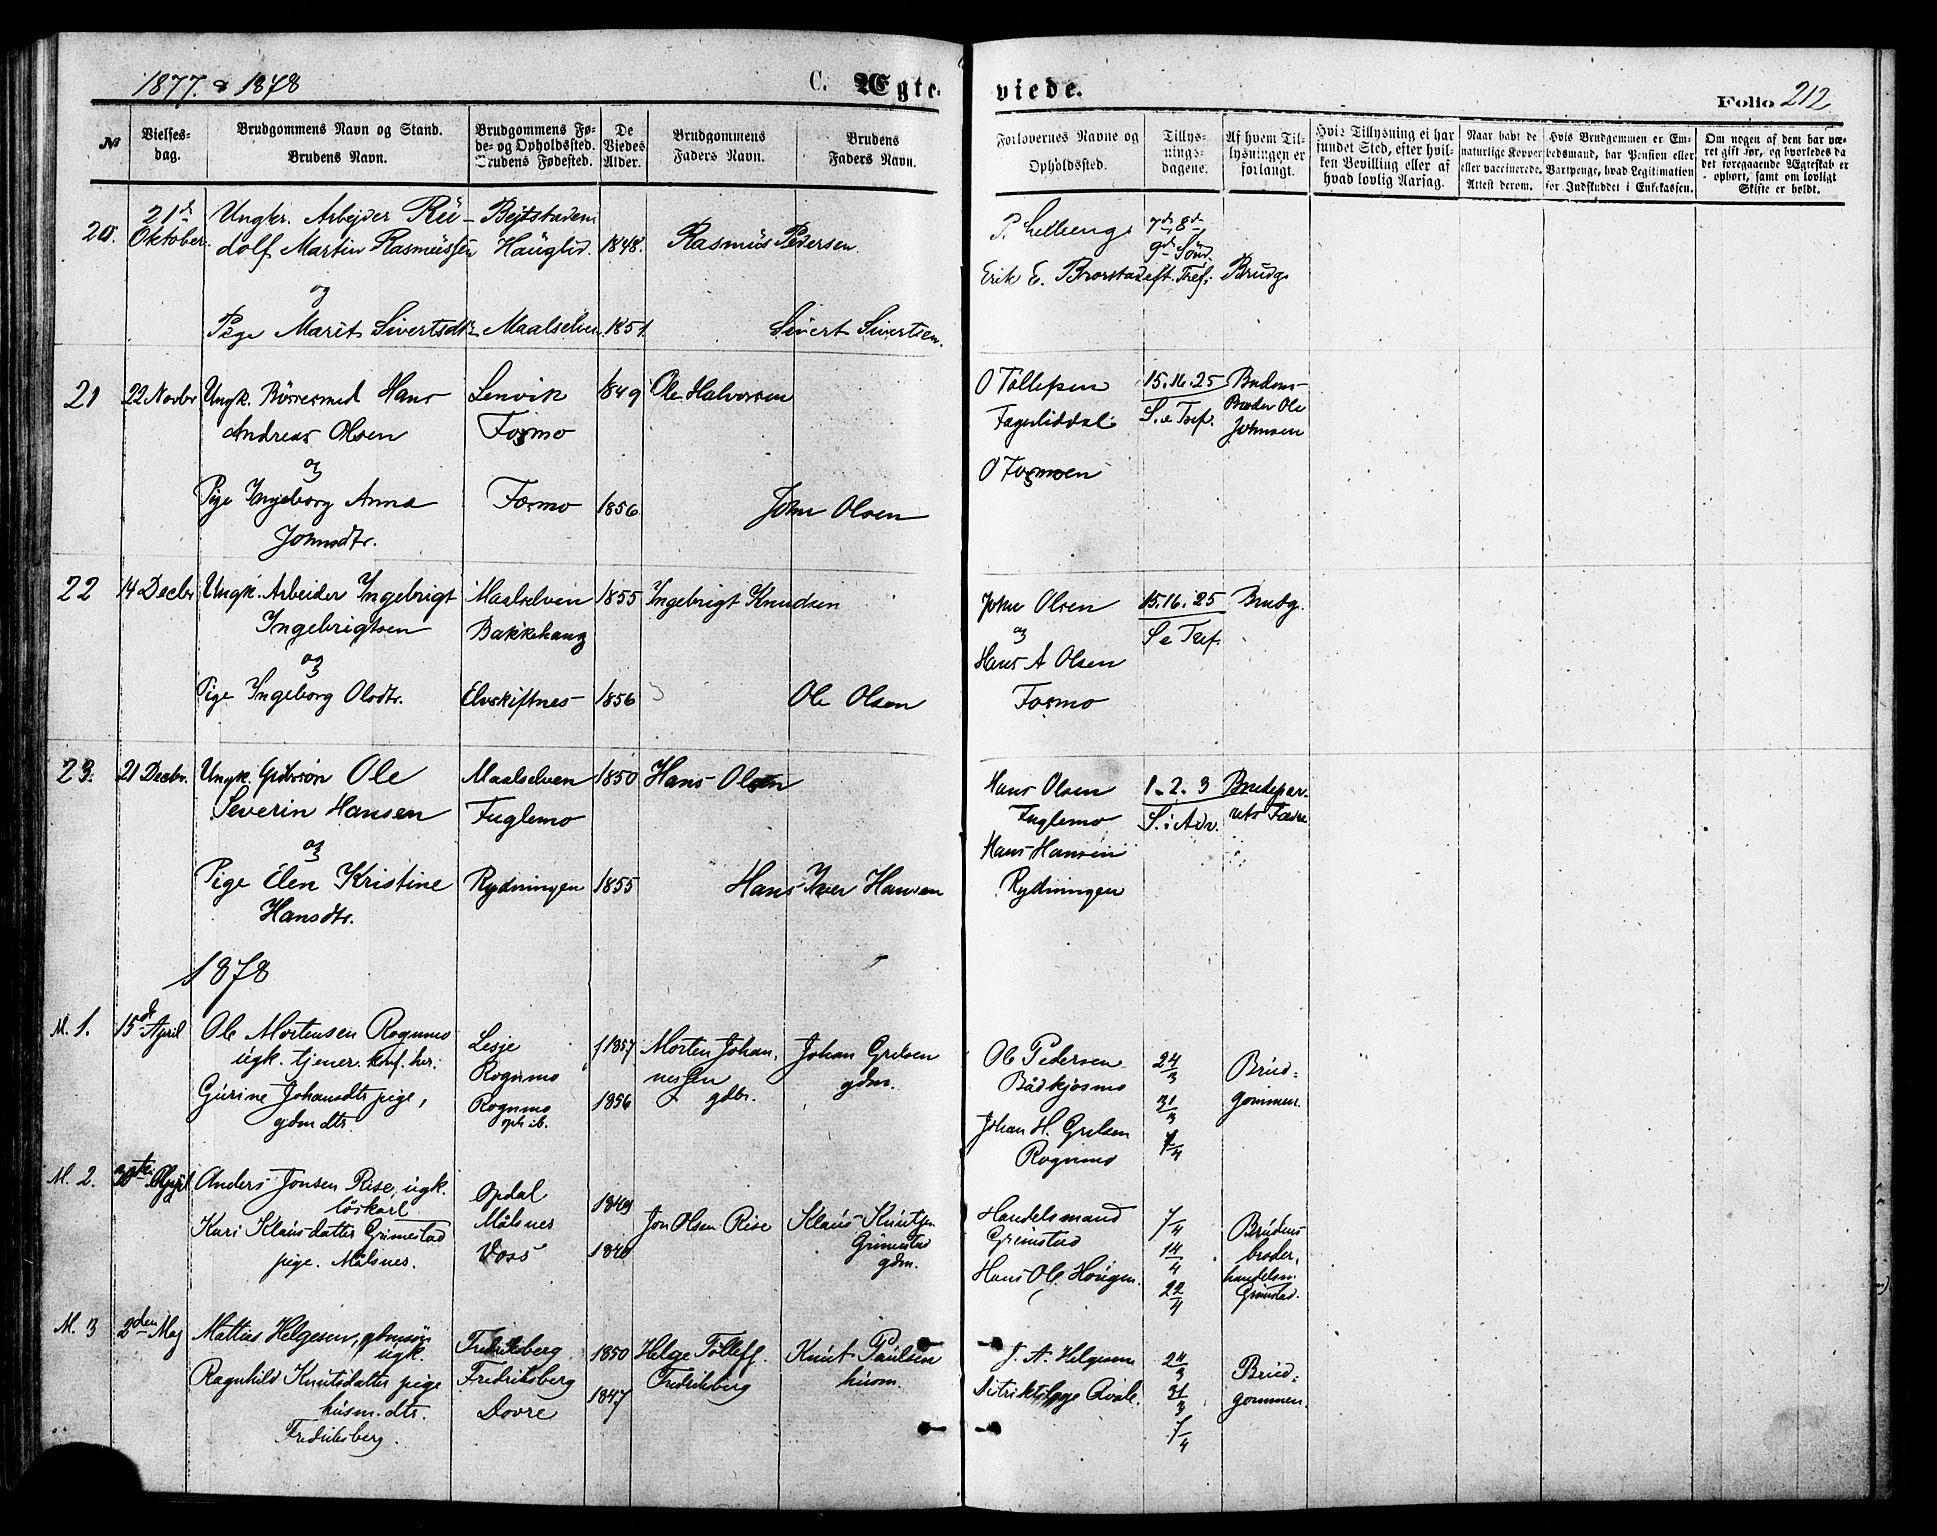 1877. & 1878
C. Ægte-
viede.
Folio 212
No
Vielses-
dag.
Brudgommens Navn og Stand.
Brudens Navn.
Brudgommens Fø-
de- og Opholdssted.
Brudens Fødested.
De
Viedes
Alder.
Brudgommens
Faders Navn.
Brudens
Faders Navn.
Forlovernes Navne og
Opholdssted.
Tillys-
nings-
dagene.
Af hvem Til-
lysningen er
forlangt.
Hvis Tillysning ei har
fundet Sted, efter hvil-
ken Bevilling eller af
hvad lovlig Aarsag.
Naar havt de
naturlige Kopper
eller vaccinerede.
Attest derom.
Hvis Brudgommen er Em-
bedsmand, har Pension eller
Vartpenge, hvad Legitimation
for Indskuddet i Enkekassen.
Om nogen af dem har væ-
ret gift før, og hvorledes da
det foregaaende Ægteskab er
ophørt, samt om lovligt
Skifte er holdt.
20. 21de Oktober.
Ungkr. Arbejder Ru-
dolf Martin Rasmussen
og
Pige Marit Sivertsdtr.
Bejtstaden
Hauglid.
Maalselven
1848.
1851.
Rasmus Pedersen.
Sivert Sivertsen.
P. Selbeng
Erik E. Brorstad
7de, 8de
9de Sønd.
eft. Tref.
Brudg.
21 22 Novbr
Ungk. Børsesmed Hans
Andreas Olsen
og
Pige Ingeborg Anna
Johnsdtr.
Lenvik
Fosmo
Fosmo
1849
1856
Ole Halvorsen
John Olsen
O Tollefsen
Fagerliddal
O Fosmoen
15. 16. 25
S. e Tref.
Brudens
Broder Ole
Johnsen
22 14 Decbr
Ungk. Arbeider Ingebrigt
Ingebrigtsen
og
Pige Ingeborg Olsdtr.
Maalselven
Bakkehaug
Elvskiftnes
1855
1856
Ingebrigt Knudsen
Ole Olsen
John Olsen
og
Hans A Olsen
Fosmo
15. 16. 25
S e Tref.
Brudg.
23. 21 Decbr.
Ungk. Grdbrsøn Ole
Severin Hansen
og
Pige Elen Kristine
Hansdtr.
Maalselven
Fuglemo
Rydningen
1850
1855
Hans Olsen
Hans Iver Hansen
Hans Olsen
Fuglemo
Hans Hansen
Rydningen
1. 2. 3
S. i Adv.
Brudepar-
rets Fædre
1878
M. 1. 15de April
Ole Mortensen Rognmo
ugk. tjener. konf. her.
Gurine Johansdtr pige,
gdmdtr.
Lesje
Rognmo
Rognmo
1857
1856
Morten Johan-
nessen
gdbr.
Johan Grelsen
gdm.
Ole Pedersen
Johan H. Grelsen
Rognmo
24/3
31/3
7/4
Brud-
gommen.
M. 2. 30te April
Anders Jonsen Rise, ugk.
løskarl
Kari Klausdatter Grimestad
pige. Målsnes.
Opdal
Målsnes
Voss
1849
1840
Jon Olsen Rise
Klaus Knutsen
Grimestad
gdm.
Handelsmand
Grimstad
Hans Ol. Hougen.
7/4
14/4
22/4
Brudens
broder,
handelsm.
Grimstad.
M. 3 2den Maj
Mattias Helgesen, gdmsøn
ugk.
Ragnhild Knutsdatter pige
husm. dtr.
Fredriksberg.
Fredriksberg
Fredriksberg
Dovre
1850
1847
Helge Tolleff.
Fredriksberg
Knut Paulsen
husm.
J. A. Helgesen
Distriktslæge Qvale.
24/3
31/3
7/4
Brud-
gommen.